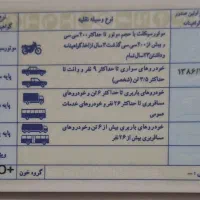 نوع وسیله نقلیه
موتورسیکلت با حجم موتور تا حداکثر ۲۰۰ سی سی
و بیش از ۲۰۰ سی سی گذشت ۲ سال از اخذ گواهینامه
و داشتن ۲۳ سال تمام
موتورسی
خودروهای سواری تا حداکثر ۹ نفر و وانت تا
حداکثر ۳/۵ تن (شخصی)
پایه
۱۳۸۶/
خودروهای باربری تا حداکثر ۶ تن و خودروهای
مسافربری تا حداکثر ۲۶ نفر و خودروهای خدمات
عمومی
پایه
خودروهای باربری بیش از ۶ تن و خودروهای
مسافربری بیش از ۲۶ نفر
پایه
گروه خون
O+